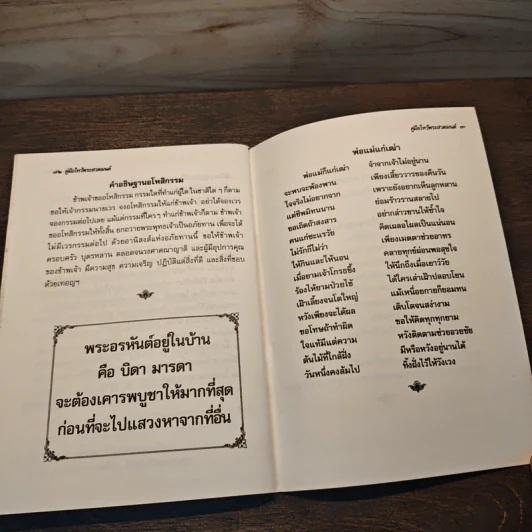 คู่มือไหว้พระสวดมนต์
คำอธิษฐานอโหสิกรรม
ข้าพเจ้าขออโหสิกรรม กรรมใดที่ทำแก่ผู้ใด ในชาติใด ๆ ก็ตาม
ขอให้เจ้ากรรมนายเวร จงอโหสิกรรมให้แก่ข้าพเจ้า อย่าได้จองเวร
จองกรรมต่อไปเลย แม้แต่กรรมที่ใคร ๆ ทำแก่ข้าพเจ้าก็ตาม ข้าพเจ้า
ขออโหสิกรรมให้ทั้งสิ้น ยกถวายพระพุทธเจ้าเป็นอภัยทาน เพื่อจะได้
ไม่มีเวรกรรมต่อไป ด้วยอานิสงส์แห่งอภัยทานนี้ ขอให้ข้าพเจ้า
ครอบครัว บุตรหลาน ตลอดจนวงศาคณาญาติ และผู้มีอุปการคุณ
ของข้าพเจ้า มีความสุข ความเจริญ ปฏิบัติแต่สิ่งที่ดี และสิ่งที่ชอบ
ด้วยเทอญฯ
พระอรหันต์อยู่ในบ้าน
คือ บิดา มารดา
จะต้องเคารพบูชาให้มากที่สุด
ก่อนที่จะไปแสวงหาจากที่อื่น
คู่มือไหว้พระสวดมนต์
พ่อแม่แก่เฒ่า
พ่อแม่ก็แก่เฒ่า จำจากเจ้าไม่อยู่นาน
จะพบจะพ้องพาน เพียงเสี้ยววารของคืนวัน
ใจจริงไม่อยากจาก เพราะยังอยากเห็นลูกหลาน
แต่ชีพมิทนนาน ย่อมร้าวรานสลายไป
ขอเถิดถ้าสงสาร อย่ากล่าวขานให้ช้ำใจ
คนแก่ชะแรวัย คิดเผลอไผลเป็นแน่นอน
ไม่รักก็ไม่ว่า เพียงเมตตาช่วยอาทร
ให้กินและให้นอน คลายทุกข์ผ่อนพอสุขใจ
เมื่อยามเจ้าโกรธขึ้ง ให้นึกถึงเมื่อเยาว์วัย
ร้องไห้ยามป่วยไข้ ได้ใครเล่าเฝ้าปลอบโยน
เฝ้าเลี้ยงจนโตใหญ่ แม้เหนื่อยกายก็ยอมทน
หวังเพียงจะได้ผล เติบโตจนสง่างาม
ขอโทษถ้าทำผิด ขอให้คิดทุกทุกยาม
ใจแท้มีแต่ความ หวังติดตามช่วยอวยชัย
ต้นไม้ที่ใกล้ฝั่ง มีหรือหวังอยู่นานได้
วันหนึ่งคงล้มไป ทิ้งฝั่งไว้ให้วังเวง